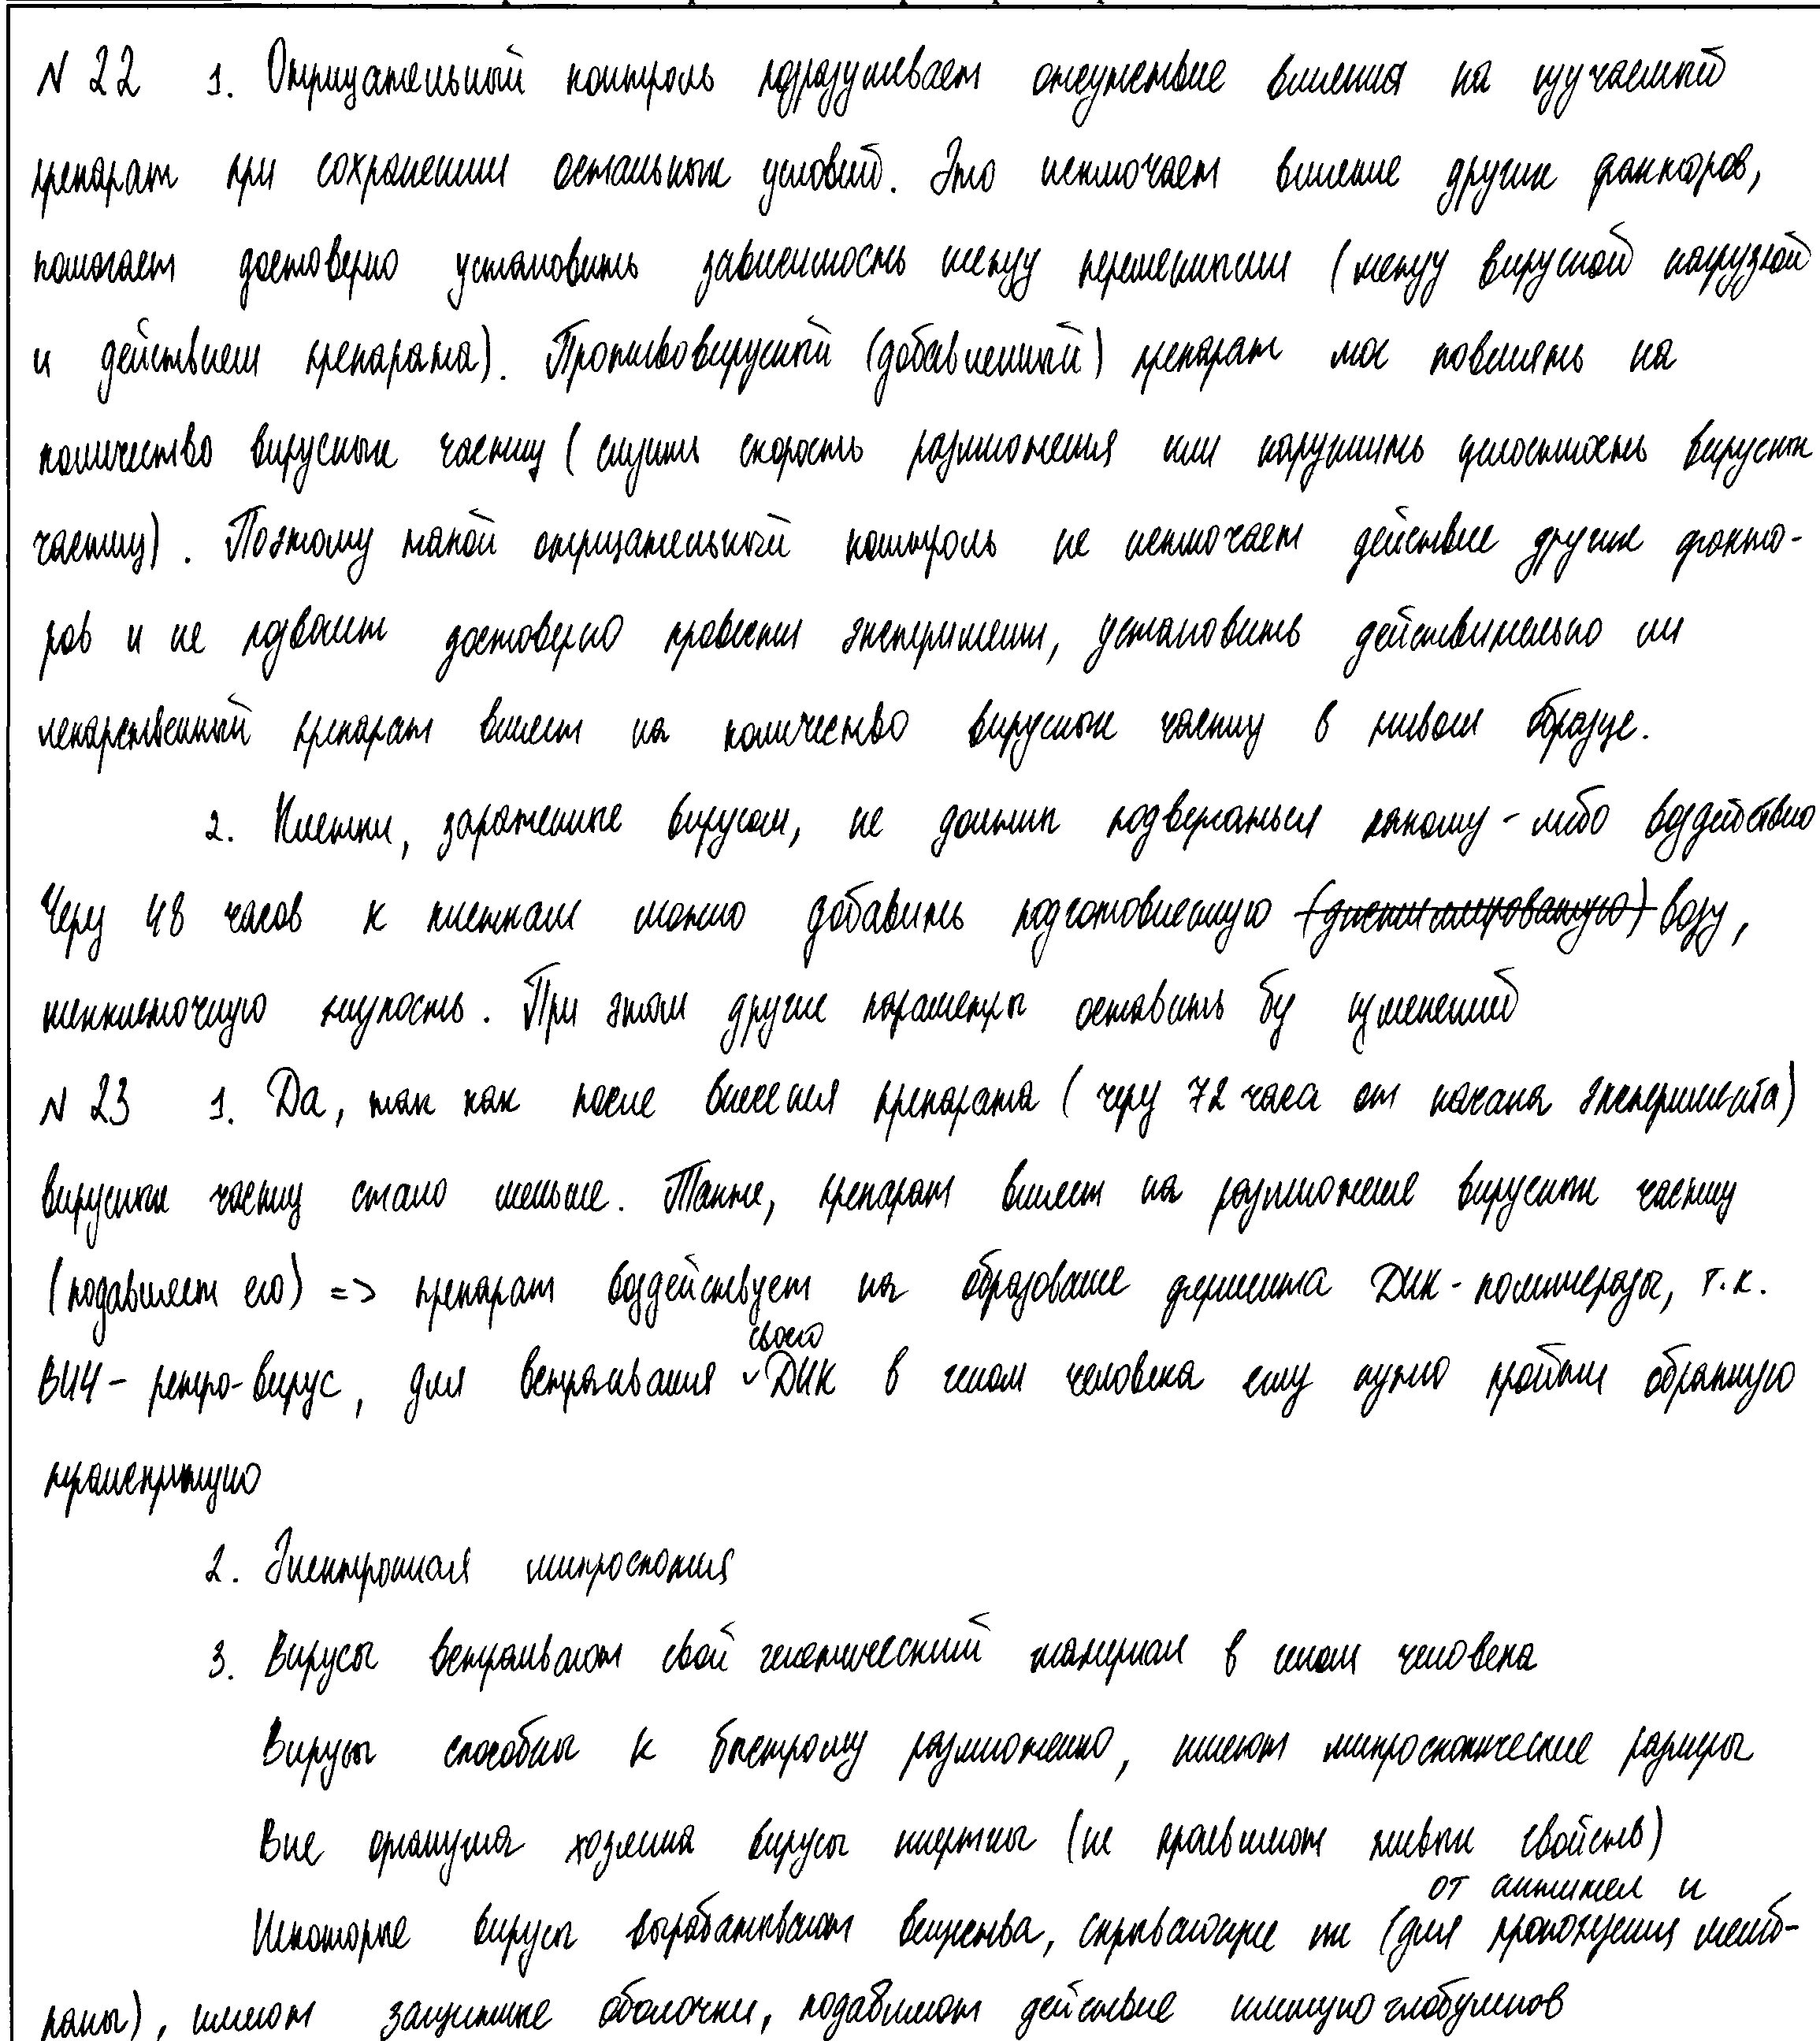 N 22 1. Отрицательный контроль подразумевает отсутствие влияния на изучаемый
препарат при сохранении остальных условий. Это исключает влияние других факторов,
помогает достоверно установить зависимость между переменными (между вирусной нагрузкой
и действием препарата). Противовирусный (добавленный) препарат мог повлиять на
количество вирусных частиц (снизить скорость размножения или нарушить целостность вирусных
частиц). Поэтому такой отрицательный контроль не исключает действие других факто-
ров и не позволит достоверно провести эксперимент, установить действительно ли
лекарственный препарат влияет на количество вирусных частиц в живом образце.
2. Клетки, зараженные вирусом, не должны подвергаться какому-либо воздействию
Через 48 часов к клеткам можно добавить подготовленную (дистиллированную) воду,
межклеточную жидкость. При этом другие параметры оставить без изменений
N 23 1. Да, так как после внесения препарата (через 72 часа от начала эксперимента)
вирусных частиц стало меньше. Также, препарат влияет на размножение вирусных частиц
(подавляет его) => препарат воздействует на образование фермента ДНК-полимеразы, т.к.
ВИЧ - ретро-вирус, для встраивания своего ДНК в геном человека ему нужно пройти обратную
транскрипцию
2. Электронная микроскопия
3. Вирусы встраивают свой генетический материал в геном человека
Вирусы способны к быстрому размножению, имеют микроскопические размеры
Вне организма хозяина вирусы инертны (не проявляют живых свойств)
от антител и
Некоторые вирусы вырабатывают вещества, скрывающие их (для прохождения мемб-
раны), имеют защитные оболочки, подавляют действие иммуноглобулинов